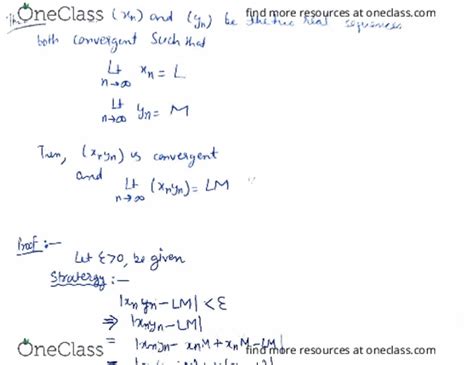 OneClass find more resources at oneclass.com
(xn) and (yn) be the real sequences
both convergent Such that
Lt xn = L
n→∞
Lt yn = M
n→∞
Then, (xnyn) is convergent
and Lt (xnyn) = LM
n→∞
Proof :—
Let ε>0, be given
Stratergy :—
|xnyn - LM| < ε
⇒ |xnyn - LM|
= |xnyn - xnM + xnM - LM|
OneClass find more resources at oneclass.com